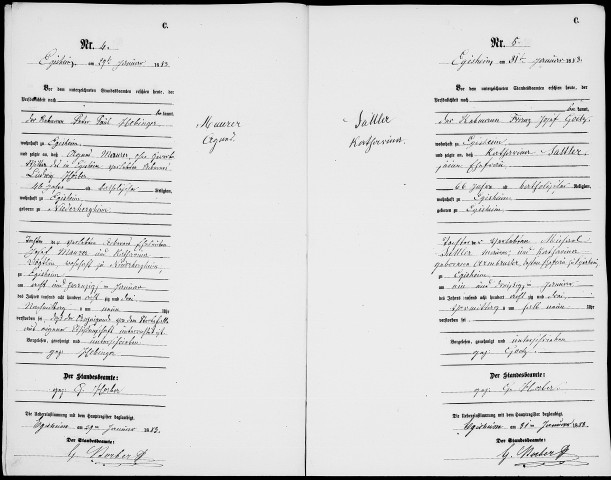 C.
Nr. 4.
Egisheim, am 29t. Januar 1883.
Vor dem unterzeichneten Standesbeamten erschien heute, der
Persönlichkeit nach
be kannt,
der Rebmann Peter Paul Hebinger
wohnhaft zu Egisheim
und zeigte an, daß Agnes Maurer, ohne Gewerbe
Wittwe des in Egisheim verstorbenen Rebmanns
Ludwig
46 Jahre alt, katholischer Religion,
wohnhaft zu Egisheim
geboren zu Niederhergheim
Tochter der verstorbenen Eheleute
Josef Maurer und Katharina
wohnhaft zu Niederhergheim
zu Egisheim
am acht und zwanzigsten Januar
des Jahres tausend acht hundert achtzig und drei
Nachmittags um neun Uhr
verstorben sei,
Vorgelesen, genehmigt und unterschrieben
gez Hebinger
Der Standesbeamte:
gez G. Horber
Die Uebereinstimmung mit dem Hauptregister beglaubigt.
Egisheim am 29ten Januar 1883.
Der Standesbeamte:
G. Horber
Maurer
Agnes
Sattler
Katharina
C.
Nr. 5.
Egisheim, am 31t. Januar 1883.
Vor dem unterzeichneten Standesbeamten erschien heute, der
Persönlichkeit nach
be kannt,
der Rebmann Franz Josef Goetz
wohnhaft zu Egisheim
und zeigte an, daß Katharina Sattler,
seine Ehefrau
66 Jahre alt, katholischer Religion,
wohnhaft zu Egisheim
geboren zu Egisheim
Tochter des verstorbenen Michael
Sattler und Katharina
geborene Armbruster,
zu Egisheim
am ein und dreißigsten Januar
des Jahres tausend acht hundert achtzig und drei
Vormittags um halb neun Uhr
verstorben sei.
Vorgelesen, genehmigt und unterschrieben
gez Goetz.
Der Standesbeamte:
gez G. Horber.
Die Uebereinstimmung mit dem Hauptregister beglaubigt.
Egisheim am 31ten Januar 1883.
Der Standesbeamte:
G. Horber